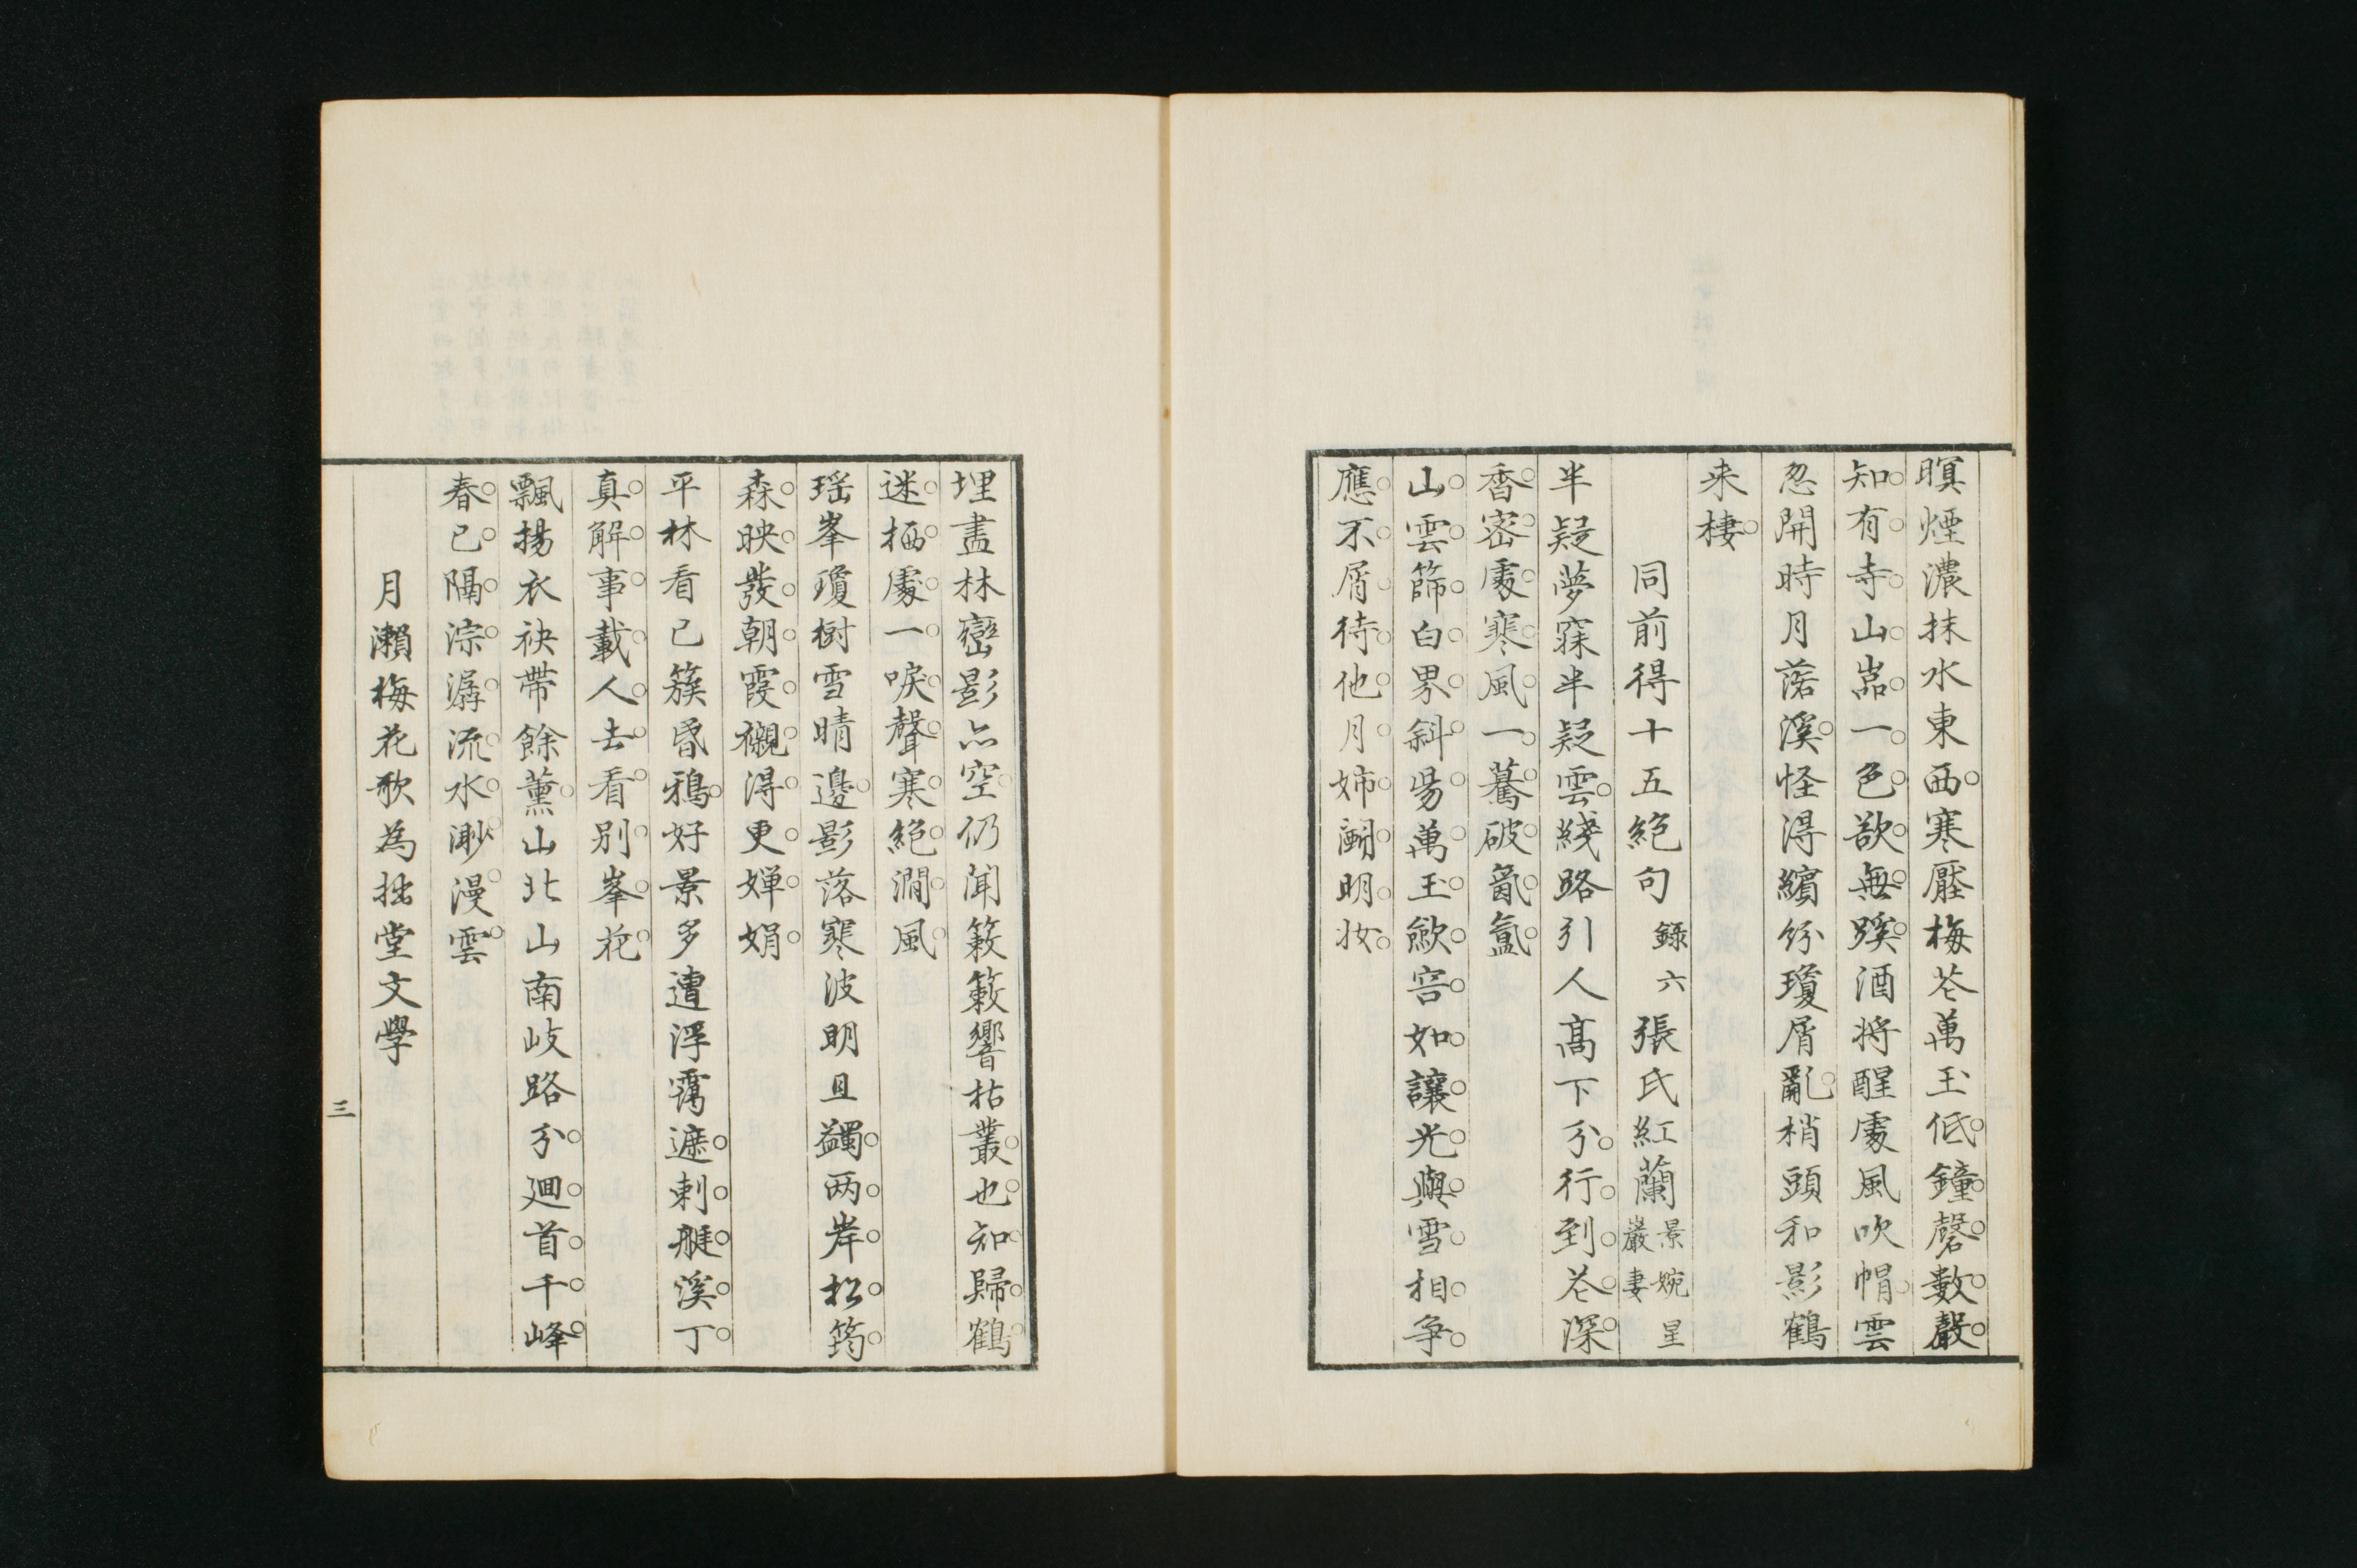 暝煙濃抹水東西寒壓梅花萬玉低鐘磬數聲
知有寺山嵓一色欲無蹊酒將醒處風吹帽雲
忽開時月落溪怪得繽紛瓊屑亂梢頭和影鶴
来棲
同前得十五絶句 録六 張氏紅蘭 景婉星巖妻
半疑夢寐半疑雲綫路引人高下分行到花深
香密處寒風一驀破氤氳
山雲篩白界斜陽萬玉歛容如讓光與雪相争
應不屑待他月姉鬭明妆
埋盡林巒影亦空仍闻簌簌響枯叢也知歸鶴
迷栖處一唳聲寒絶澗風
瑶峯瓊樹雪晴邊影落寒波明且蠲两岸松筠
森映發朝霞襯得更嬋娟
平林看已簇昏鴉好景多遭浮靄遮刺艇溪丁
真解事載人去看别峯花
飄揚衣袂帶餘薫山北山南岐路分廻首千峰
春已隔淙潺流水渺漫雲
月瀬梅花歌為拙堂文學
三